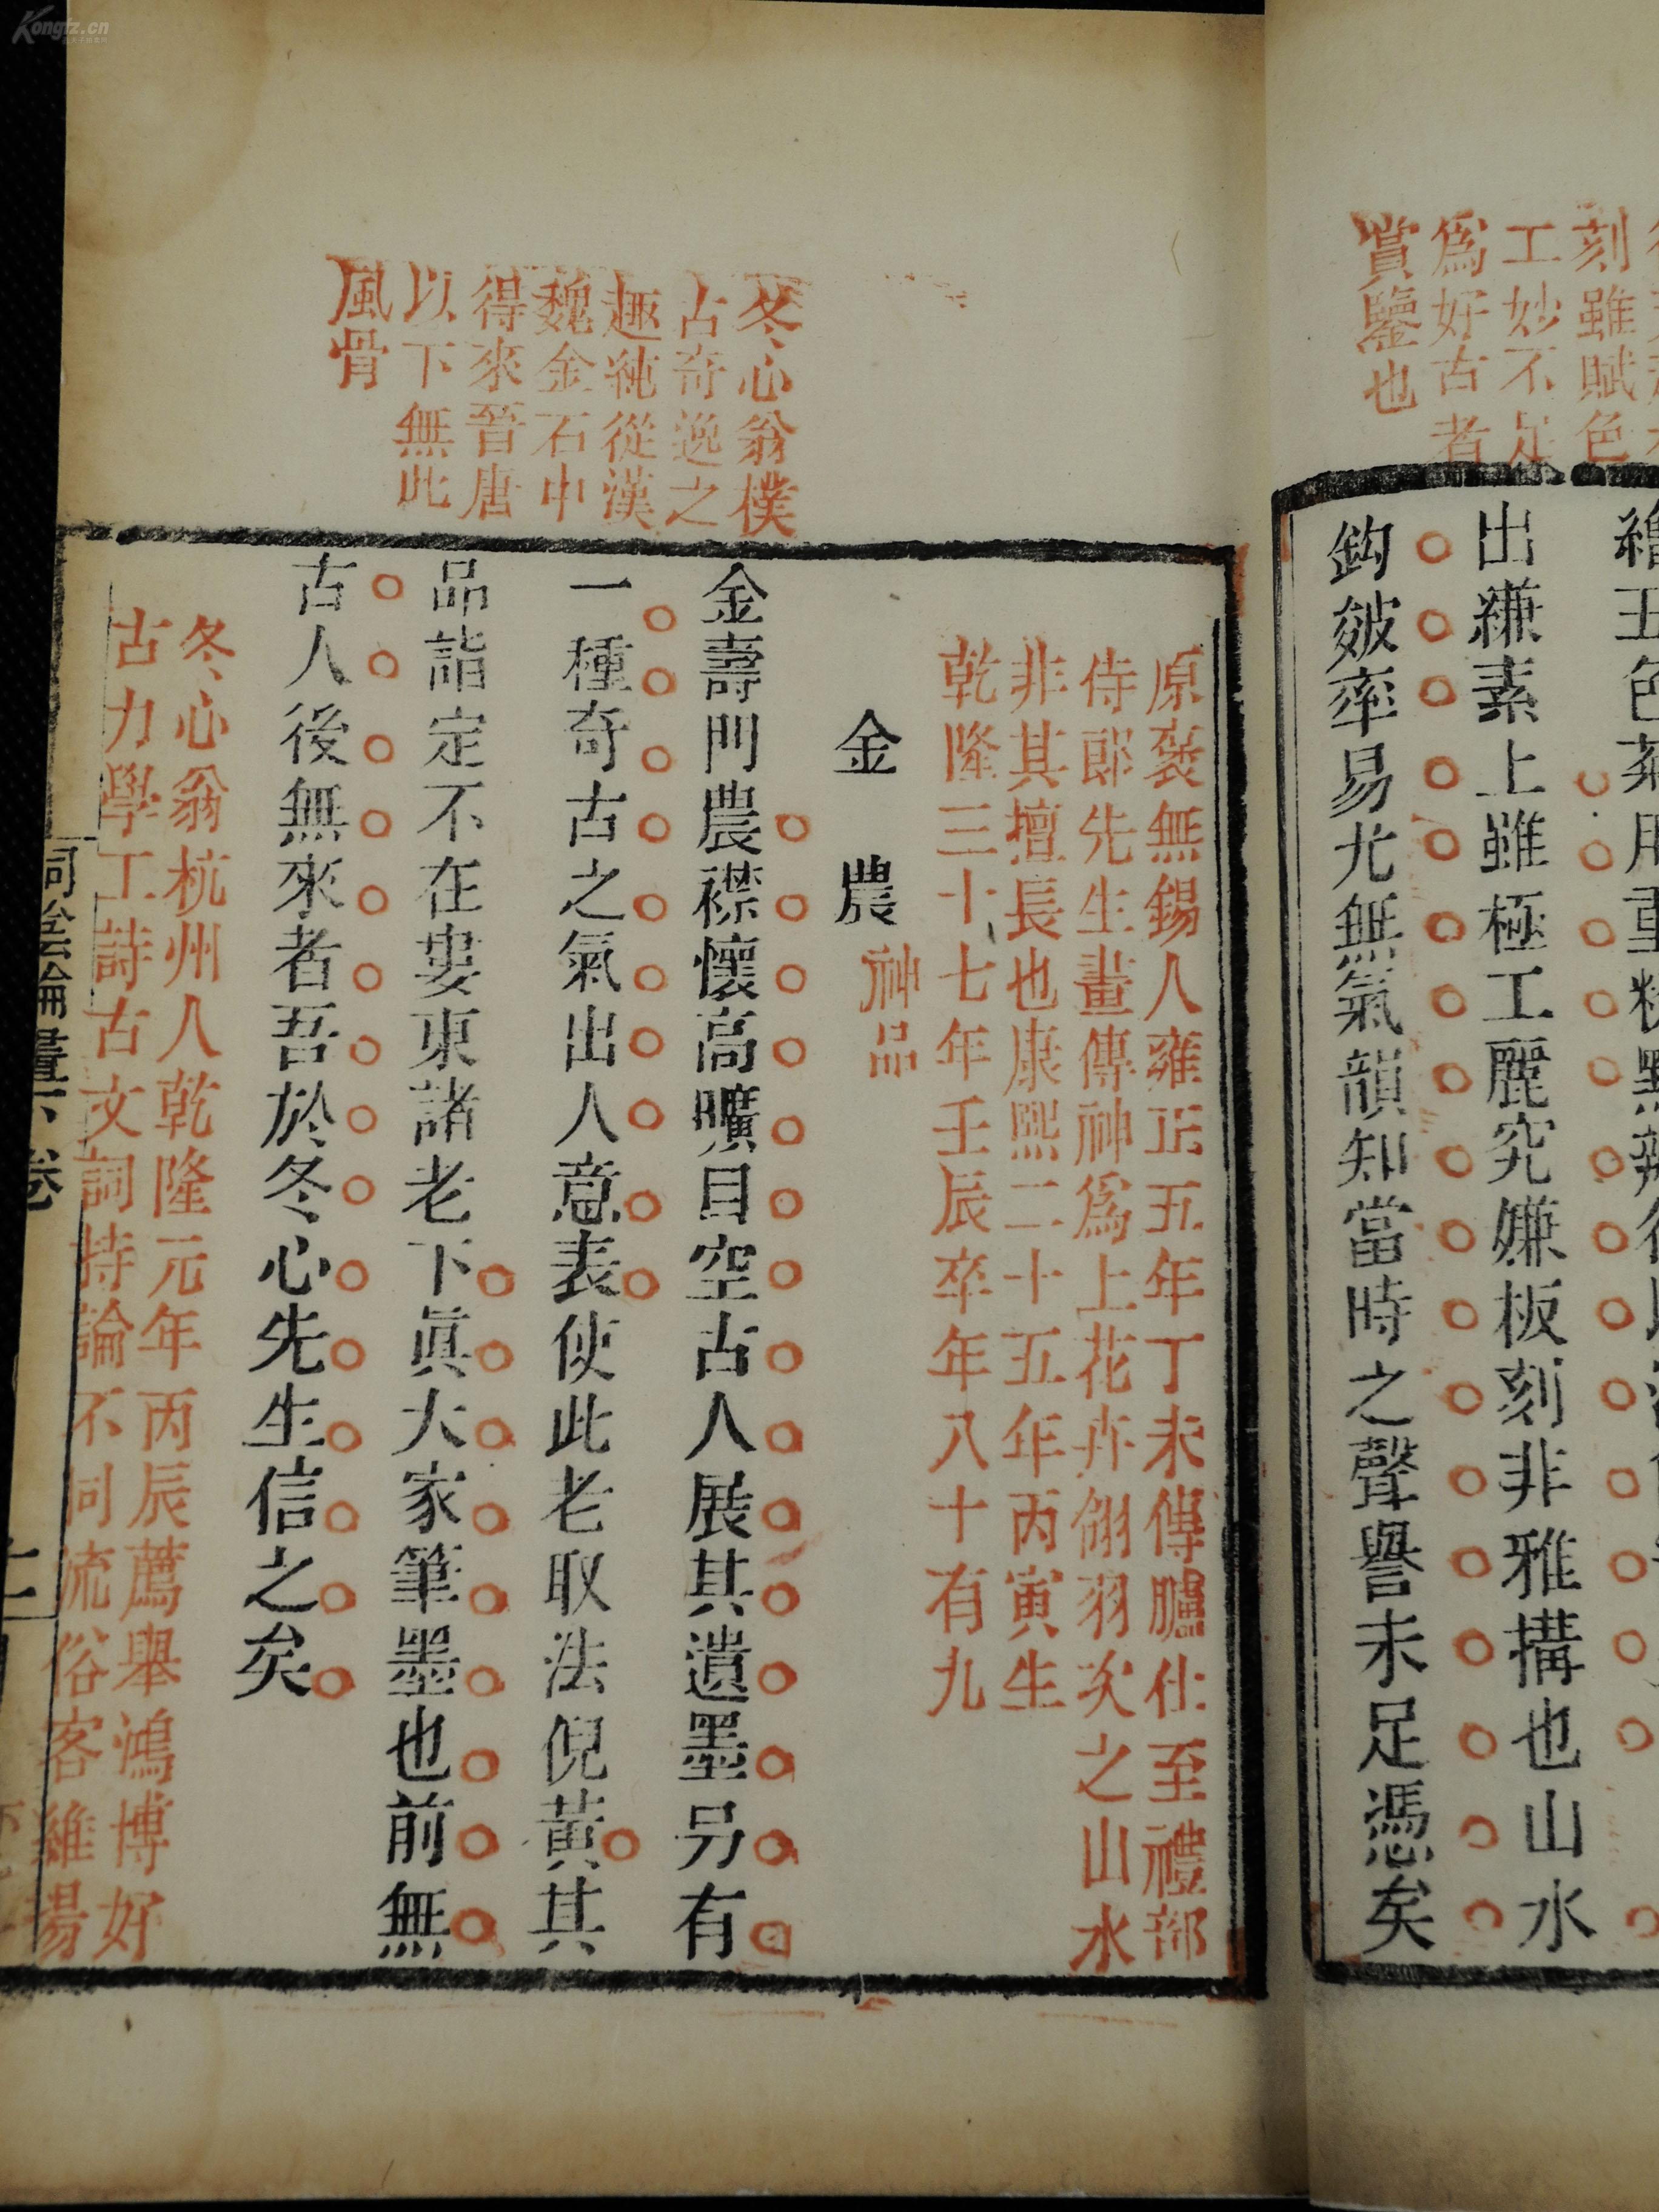 賦
刻雖賦色
工妙不足
爲好古者
賞鑒也
出縑素上雖極工麗究嫌板刻非雅搆也山水
鈎皴率易尤無氣韻知當時之聲譽未足憑矣
冬心翁樸
古奇逸之
趣純從漢
魏金石中
得來晉唐
以下無此
風骨
原褱無錫人雍正五年丁未傳臚仕至禮部
侍郎先生畫傳神爲上花卉翎羽次之山水
非其擅長也康熙二十五年丙寅生
乾隆三十七年壬辰卒年八十有九
金農神品
金壽門農襟懷高曠目空古人展其遺墨另有
一種奇古之氣出人意表使此老取法倪黃其
品詣定不在婁東諸老下眞大家筆墨也前無
古人後無來者吾於冬心先生信之矣
冬心翁杭州人乾隆元年丙辰薦舉鴻博好
古力學工詩古文詞持論不同流俗客維揚
桐陰論畫下卷
十一
Kongfz.cn